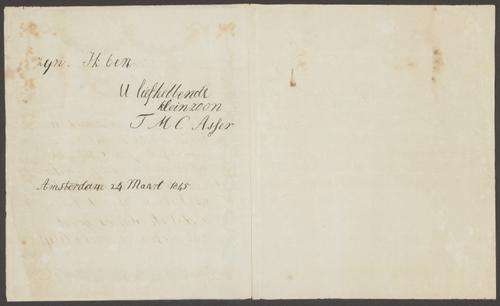 zyn. Ik ben
U liefhebbende
kleinzoon
T M C Asser
Amsterdam 24 Maart 1845